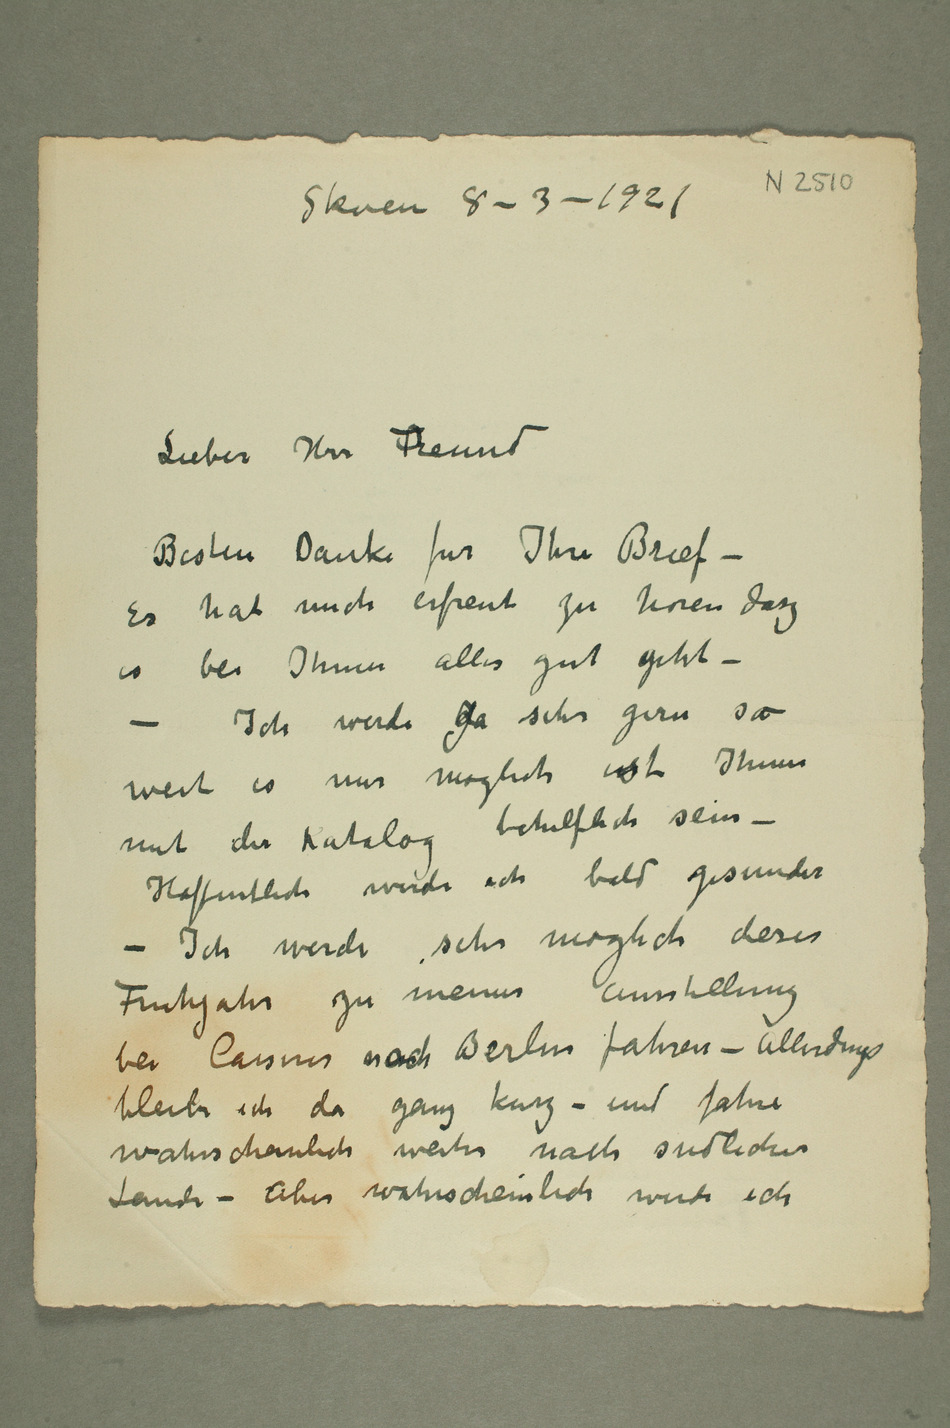 Skøien 8–3–1921
N 2510
Lieber Herr Freund
Besten Danke fur Ihre Brief –
Es hat mich erfreut zu horen dasz
es bei Ihnen alles gut geht –
– Ich werde Ja sehr gern so
weit es nur moglich ist Ihnen
mit der Katalog behilflich sein –
Hoffentlich werde ich bald gesunder
– Ich werde sehr moglich deses
Fruhjahr zu meiner Ausstellung
bei Cassirer nach Berlin fahren – Allerdings
bleibe ich da ganz kurz – und fahre
wahrscheinlich weiter nach sudlicher
Lande – Aber wahrscheinlich werde ich